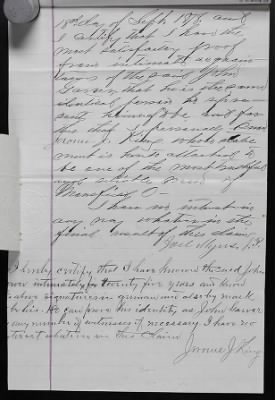 18th day of Sept 18 and
I certify that I have the
most satisfactory proof
from intimate acquain
tance of the said John
that he is the same
identical person he repre
sents himself to be and for
this that I personally
J. King whose state
ment is hereto attached to
be one of the most truthful
and reliable men of
Mansfield O—
I have no interest in
any way whatever in the
final result of this claim
Joel Myers, J.P.
I hereby certify that I have known the said John
intimately for twenty five years and know
above signatures in german and also by mark
to be his. He can prove his identity as John
by any number of witnesses if necessary I have no
interest whatever in this claim
J. King